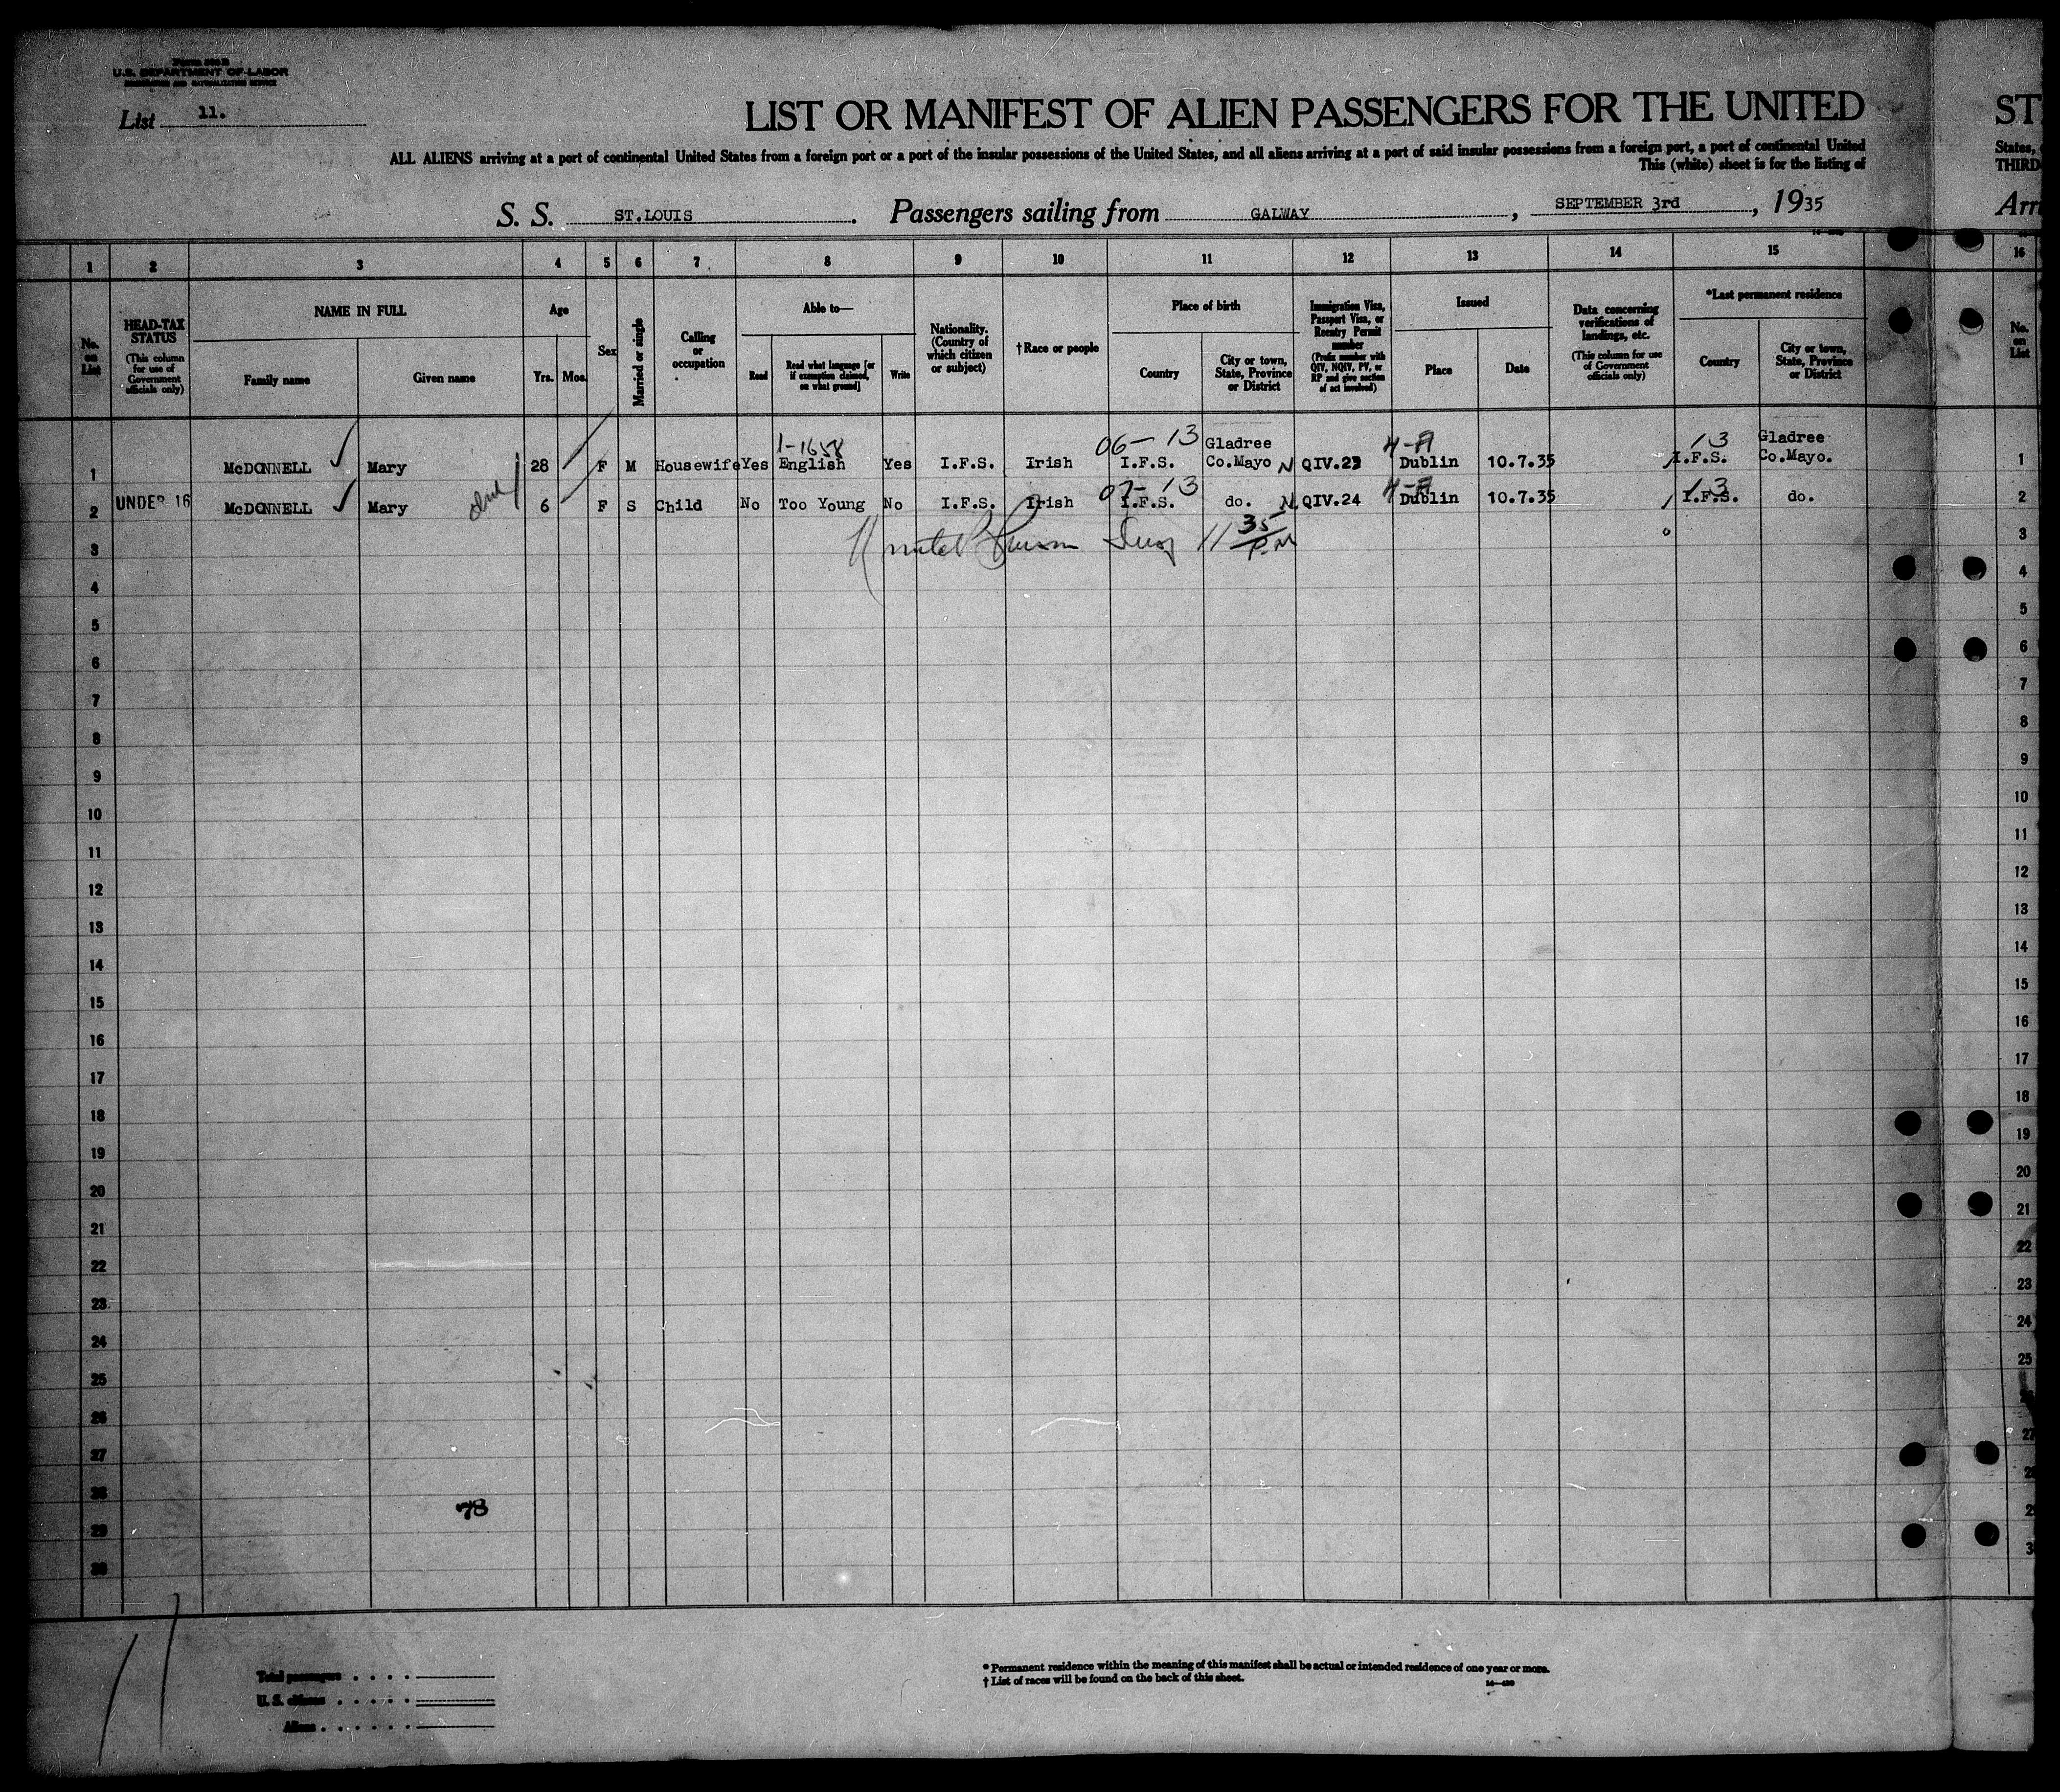 Form 500 B
U.S. DEPARTMENT OF LABOR
IMMIGRATION AND NATURALIZATION SERVICE
List 11.
LIST OR MANIFEST OF ALIEN PASSENGERS FOR THE UNITED
ST
ALL ALIENS arriving at a port of continental United States from a foreign port or a port of the insular possessions of the United States, and all aliens arriving at a port of said insular possessions from a foreign port, a port of continental United
States,
This (white) sheet is for the listing of
THIRD
S. S. ST.LOUIS . Passengers sailing from GALWAY , SEPTEMBER 3rd , 1935
Arri
1 2 3 4 5 6 7 8 9 10 11 12 13 14 15 16
No. on List
HEAD-TAX STATUS
(This column for use of Government officials only)
NAME IN FULL
Family name
Given name
Age
Yrs.
Mos.
Sex
Married or single
Calling or occupation
Able to—
Read
Read what language [or if exemption claimed, on what ground]
Write
Nationality. (Country of which citizen or subject)
†Race or people
Place of birth
Country
City or town, State, Province or District
Immigration Visa, Passport Visa, or Reentry Permit number
(Prefix number with QIV, NQIV, PV, or RP and give section of act involved)
Issued
Place
Date
Data concerning verifications of landings, etc.
(This column for use of Government officials only)
*Last permanent residence
Country
City or town, State, Province or District
No. on List
1-1658 06-13 Gladree 4-A 13 Gladree
1 McDONNELL Mary 28 F M Housewife Yes English Yes I.F.S. Irish I.F.S. Co.Mayo N QIV.23 Dublin 10.7.35 I.F.S. Co.Mayo. 1
07-13 4-A 13
2 UNDER 16 McDONNELL Mary 6 F S Child No Too Young No I.F.S. Irish I.F.S. do. N QIV.24 Dublin 10.7.35 I.F.S. do. 2
3 11 35 P.M 3
4 4
5 5
6 6
7 7
8 8
9 9
10 10
11 11
12 12
13 13
14 14
15 15
16 16
17 17
18 18
19 19
20 20
21 21
22 22
23 23
24 24
25 25
26
27 27
28
78
29
30
11
Total passengers
U. S. citizens
Aliens
* Permanent residence within the meaning of this manifest shall be actual or intended residence of one year or more.
† List of races will be found on the back of this sheet.